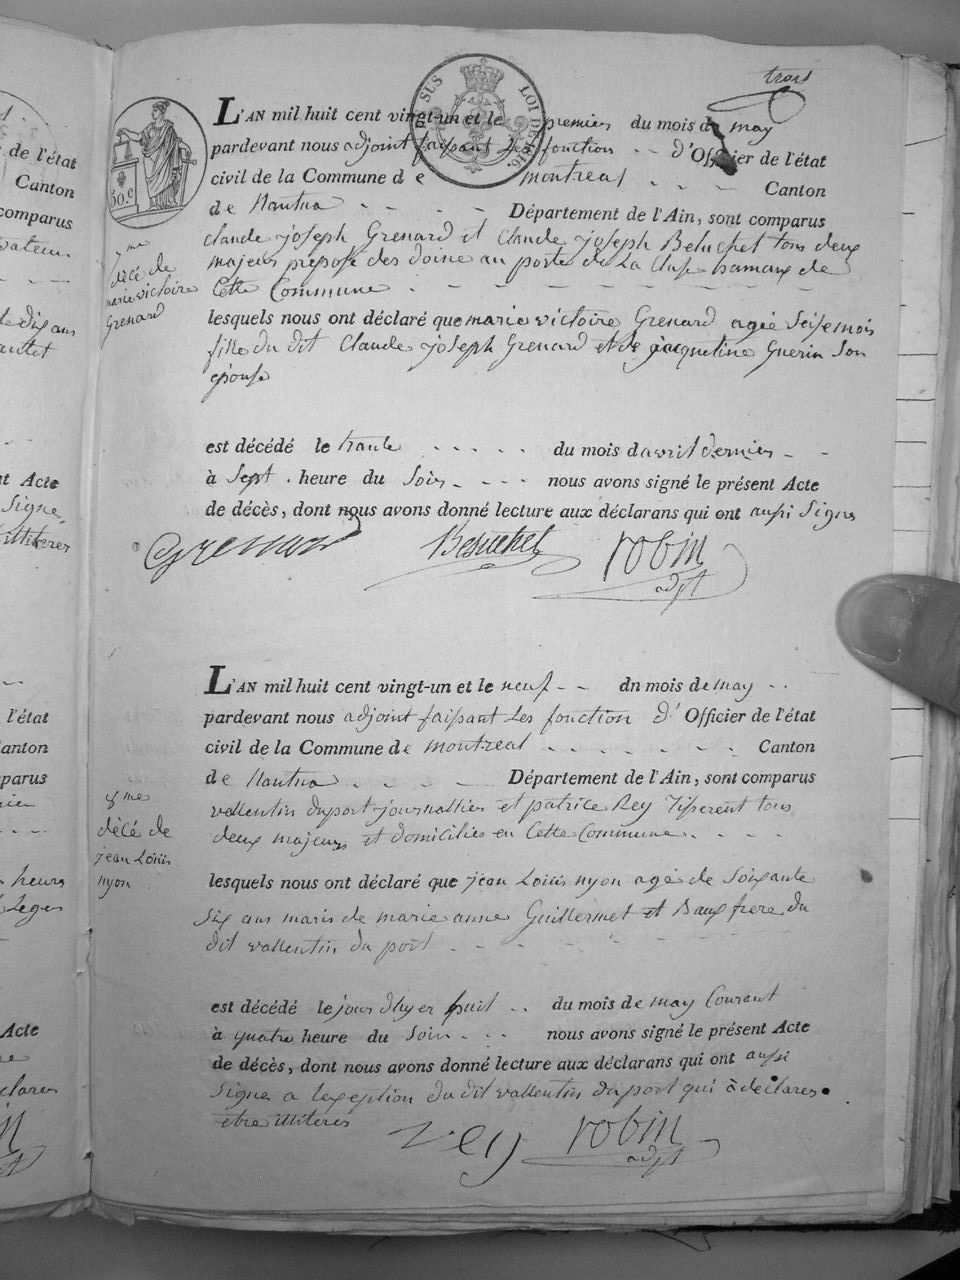 trois
SUS LOI DE 1816.
50 c
L'AN mil huit cent vingt-un et le premier du mois de may
pardevant nous adjoint faisant Les fonction - - D'Officier de l'état
civil de la Commune de montreal - - - Canton
de Nantua - - - - Département de l'Ain, sont comparus
claude joseph Grenard et Claude joseph Beluchet tous deux
majeurs préposé des doine au poste de La Cluse hamaux de
Cette Commune - - - - - -
7 me
décé de
marie victoire
Grenard
lesquels nous ont déclaré que marie victoire Grenard agée Seise mois
fille du dit Claude joseph Grenard et de jacqueline Guerin Son
épouse
est décédé le trante - - - - - du mois d'avril dernier - -
à Sept . heure du Soir - - - nous avons signé le présent Acte
de décès, dont nous avons donné lecture aux déclarans qui ont aussi Signé
Grenard Beluchet robin
adjt
L'AN mil huit cent vingt-un et le neuf - - dn mois de may - -
pardevant nous adjoint faisant Les fonction d' Officier de l'état
civil de la Commune de montreal - - - - - - - Canton
de Nantua - - - - Département de l'Ain, sont comparus
vallentin duport journallier et patrice Rey Tisserent tous
deux majeurs et domiciliés en Cette Commune - - - -
8 me
décé de
jean Louis
nyon
lesquels nous ont déclaré que jean Louis nyon agé de Soixante
Six ans maris de marie anne Guillermet et Baux frere du
dit vallentin du port - - - - - -
est décédé le jour d'hyer huit - - du mois de may Courant
à quatre heure du Soir - - - nous avons signé le présent Acte
de décès, dont nous avons donné lecture aux déclarans qui ont aussi
Signé a lexeption du dit vallentin duport qui à déclaré
être illiteres
rey robin
adjt
de l'état
Canton
comparus
dix ans
Acte
Signe
illiterer
l'état
Canton
heure
Acte